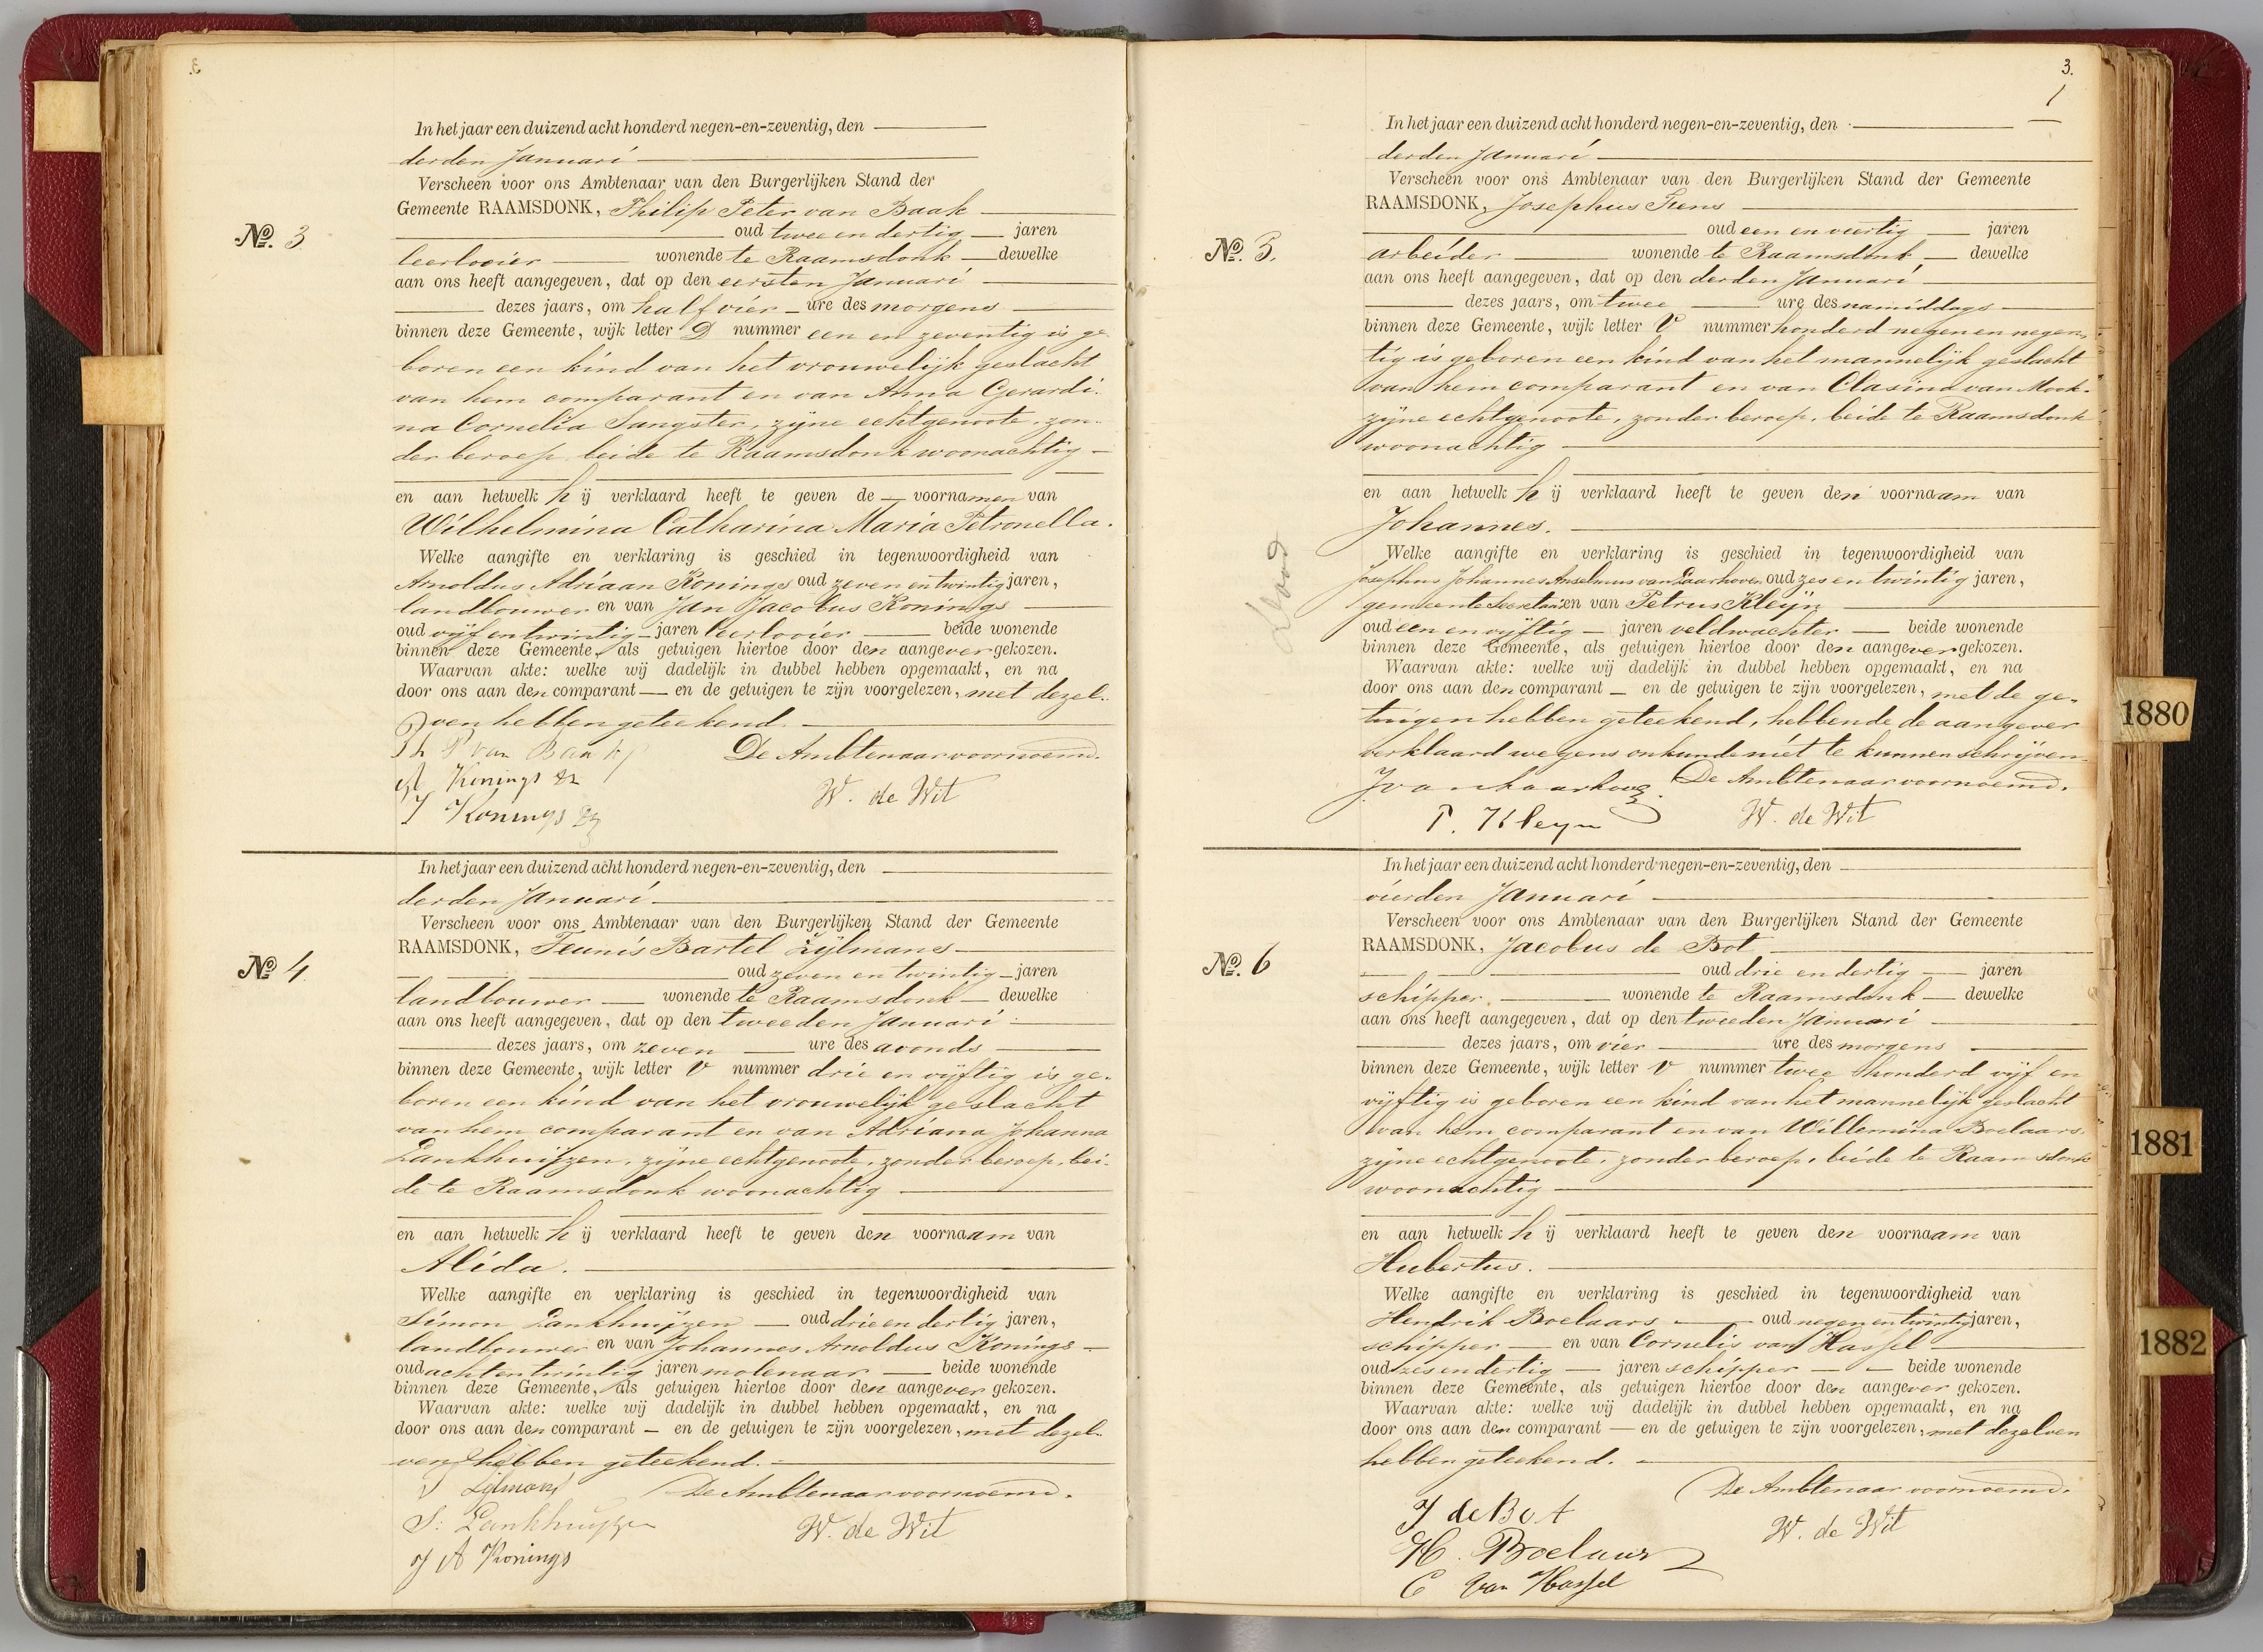 3
In het jaar een duizend acht honderd negen-en-zeventig, den
derden Januari
Verscheen voor ons Ambtenaar van den Burgerlijken Stand der
Gemeente RAAMSDONK, Philip Peter van Baak
No. 3
oud twee en dertig jaren
leerlooier wonende te Raamsdonk dewelke
aan ons heeft aangegeven, dat op den eersten Januari
dezes jaars, om half vier ure des morgens
binnen deze Gemeente, wijk letter D nummer een en zeventig is ge
boren een kind van het vrouwelijk geslacht
van hem comparant en van Anna Gerardi-
na Cornelia Sangster, zijne echtgenoote, zon-
der beroep beide te Raamsdonk woonachtig
en aan hetwelk hij verklaard heeft te geven de voornamen van
Wilhelmina Catharina Maria Petronella.
Welke aangifte en verklaring is geschied in tegenwoordigheid van
Arnoldus Adriaan Konings oud zeven en twintig jaren,
landbouwer en van Jan Jacobus Konings
oud vijf en twintig jaren leerlooier beide wonende
binnen deze Gemeente, als getuigen hiertoe door den aangever gekozen.
Waarvan akte: welke wij dadelijk in dubbel hebben opgemaakt, en na
door ons aan den comparant en de getuigen te zijn voorgelezen, met dezel-
ven hebben geteekend.
Ph P van Baak De Ambtenaar voornoemd.
A Konings W. de Wit
J Konings
In het jaar een duizend acht honderd negen-en-zeventig, den
derden Januari
Verscheen voor ons Ambtenaar van den Burgerlijken Stand der Gemeente
RAAMSDONK, Teunis Bartel Zijlmans
No. 4
oud zeven en twintig jaren
landbouwer wonende te Raamsdonk dewelke
aan ons heeft aangegeven, dat op den tweeden Januari
dezes jaars, om zeven ure des avonds
binnen deze Gemeente, wijk letter V nummer drie en vijftig is ge-
boren een kind van het vrouwelijk geslacht
van hem comparant en van Adriana Johanna
Lankhuijzen, zijne echtgenoote, zonder beroep, bei-
de te Raamsdonk woonachtig
en aan hetwelk hij verklaard heeft te geven den voornaam van
Alida.
Welke aangifte en verklaring is geschied in tegenwoordigheid van
Simon Lankhuijzen oud drie en dertig jaren,
landbouwer en van Johannes Arnoldus Konings
oud acht en twintig jaren molenaar beide wonende
binnen deze Gemeente, als getuigen hiertoe door den aangever gekozen.
Waarvan akte: welke wij dadelijk in dubbel hebben opgemaakt, en na
door ons aan den comparant en de getuigen te zijn voorgelezen, met dezel-
ven hebben geteekend.
Zijlmans De Ambtenaar voornoemd.
S: Lankhuyzen W. de Wit
J A Konings
3.
1
In het jaar een duizend acht honderd negen-en-zeventig, den
derden Januari
Verscheen voor ons Ambtenaar van den Burgerlijken Stand der Gemeente
RAAMSDONK, Josephus Fiens
No. 5.
oud een en veertig jaren
arbeider wonende te Raamsdonk dewelke
aan ons heeft aangegeven, dat op den derden Januari
dezes jaars, om twee ure des namiddags
binnen deze Gemeente, wijk letter V nummer honderd negen en negen-
tig is geboren een kind van het mannelijk geslacht
van hem comparant en van Clasina van Mook-
zijne echtgenoote, zonder beroep, beide te Raamsdonk
woonachtig
en aan hetwelk hij verklaard heeft te geven den voornaam van
Johannes.
dood
Welke aangifte en verklaring is geschied in tegenwoordigheid van
Josephus Johannes Anselmus van Laarhoven oud zes en twintig jaren,
gemeente Secretaris en van Petrus Kleijn
oud een en vijftig jaren veldwachter beide wonende
binnen deze Gemeente, als getuigen hiertoe door den aangever gekozen.
Waarvan akte: welke wij dadelijk in dubbel hebben opgemaakt, en na
door ons aan den comparant en de getuigen te zijn voorgelezen, met de ge-
tuigen hebben geteekend, hebbende de aangever
verklaard wegens onkunde niet te kunnen schrijven
J van Laarhoven De Ambtenaar voornoemd.
P. Kleyn W. de Wit
In het jaar een duizend acht honderd negen-en-zeventig, den
vierden Januari
Verscheen voor ons Ambtenaar van den Burgerlijken Stand der Gemeente
RAAMSDONK, Jacobus de Bot
No. 6
oud drie en dertig jaren
schipper wonende te Raamsdonk dewelke
aan ons heeft aangegeven, dat op den tweeden Januari
dezes jaars, om vier ure des morgens
binnen deze Gemeente, wijk letter V nummer twee honderd vijf en
vijftig is geboren een kind van het mannelijk geslacht
van hem comparant en van Willemina Boelaars
zijne echtgenoote, zonder beroep, beide te Raamsdonk
woonachtig
en aan hetwelk hij verklaard heeft te geven den voornaam van
Hubertus.
Welke aangifte en verklaring is geschied in tegenwoordigheid van
Hendrik Boelaars oud negen en twintig jaren,
schipper en van Cornelis van Hassel
oud zes en dertig jaren schipper beide wonende
binnen deze Gemeente, als getuigen hiertoe door den aangever gekozen.
Waarvan akte: welke wij dadelijk in dubbel hebben opgemaakt, en na
door ons aan den comparant en de getuigen te zijn voorgelezen, met dezelven
hebben geteekend.
De Ambtenaar voornoemd.
J de Bot W. de Wit
H. Boelaars
C van Hassel
1880
1881
1882